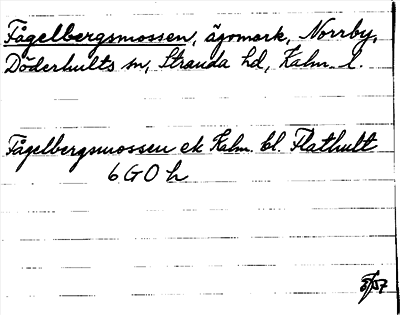 Fågelbergsmossen, ägomark, Norrby,
Döderhults sn, Stranda hd, Kalm. l.
Fågelbergsmossen ek Kalm. bl. Flathult
6 G O h